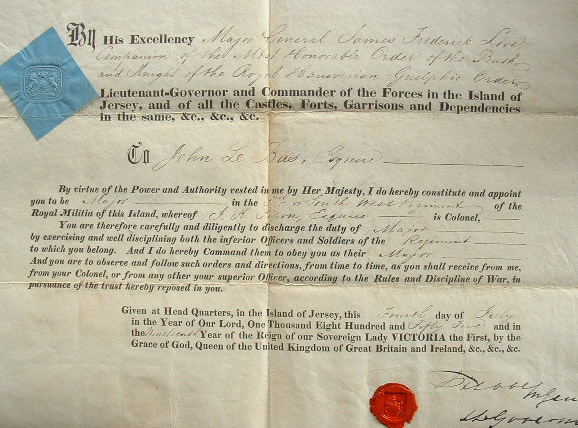 By His Excellency Major General James Frederick Love
Companion of the Most Honorable Order of the Bath
and Knight of the Royal Hanoverian Guelphic Order
Lieutenant-Governor and Commander of the Forces in the Island of
Jersey, and of all the Castles, Forts, Garrisons and Dependencies
in the same, &c., &c., &c.
To John Le Bas, Esquire
By virtue of the Power and Authority vested in me by Her Majesty, I do hereby constitute and appoint
you to be Major in the or South West Regiment of the
Royal Militia of this Island, whereof Esquire is Colonel,
You are therefore carefully and diligently to discharge the duty of Major
by exercising and well disciplining both the inferior Officers and Soldiers of the Regiment
to which you belong. And I do hereby Command them to obey you as their Major
And you are to observe and follow such orders and directions, from time to time, as you shall receive from me,
from your Colonel, or from any other your superior Officer, according to the Rules and Discipline of War, in
pursuance of the trust hereby reposed in you.
Given at Head Quarters, in the Island of Jersey, this Fourth day of July
in the Year of Our Lord, One Thousand Eight Hundred and Fifty Five and in
the Nineteenth Year of the Reign of our Sovereign Lady VICTORIA the First, by the
Grace of God, Queen of the United Kingdom of Great Britain and Ireland, &c., &c., &c.